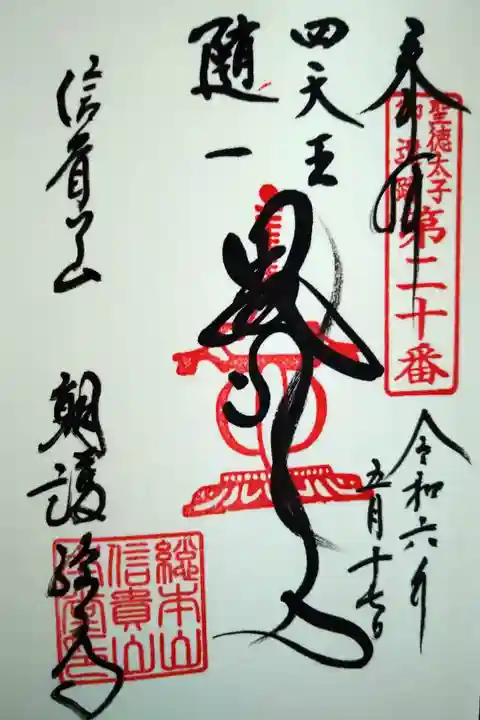 奉拝
聖徳太子
御遺跡
第二十番
令和六年
五月十七日
四天王
隨一
信貴山
朝護孫子
総本山
信貴山